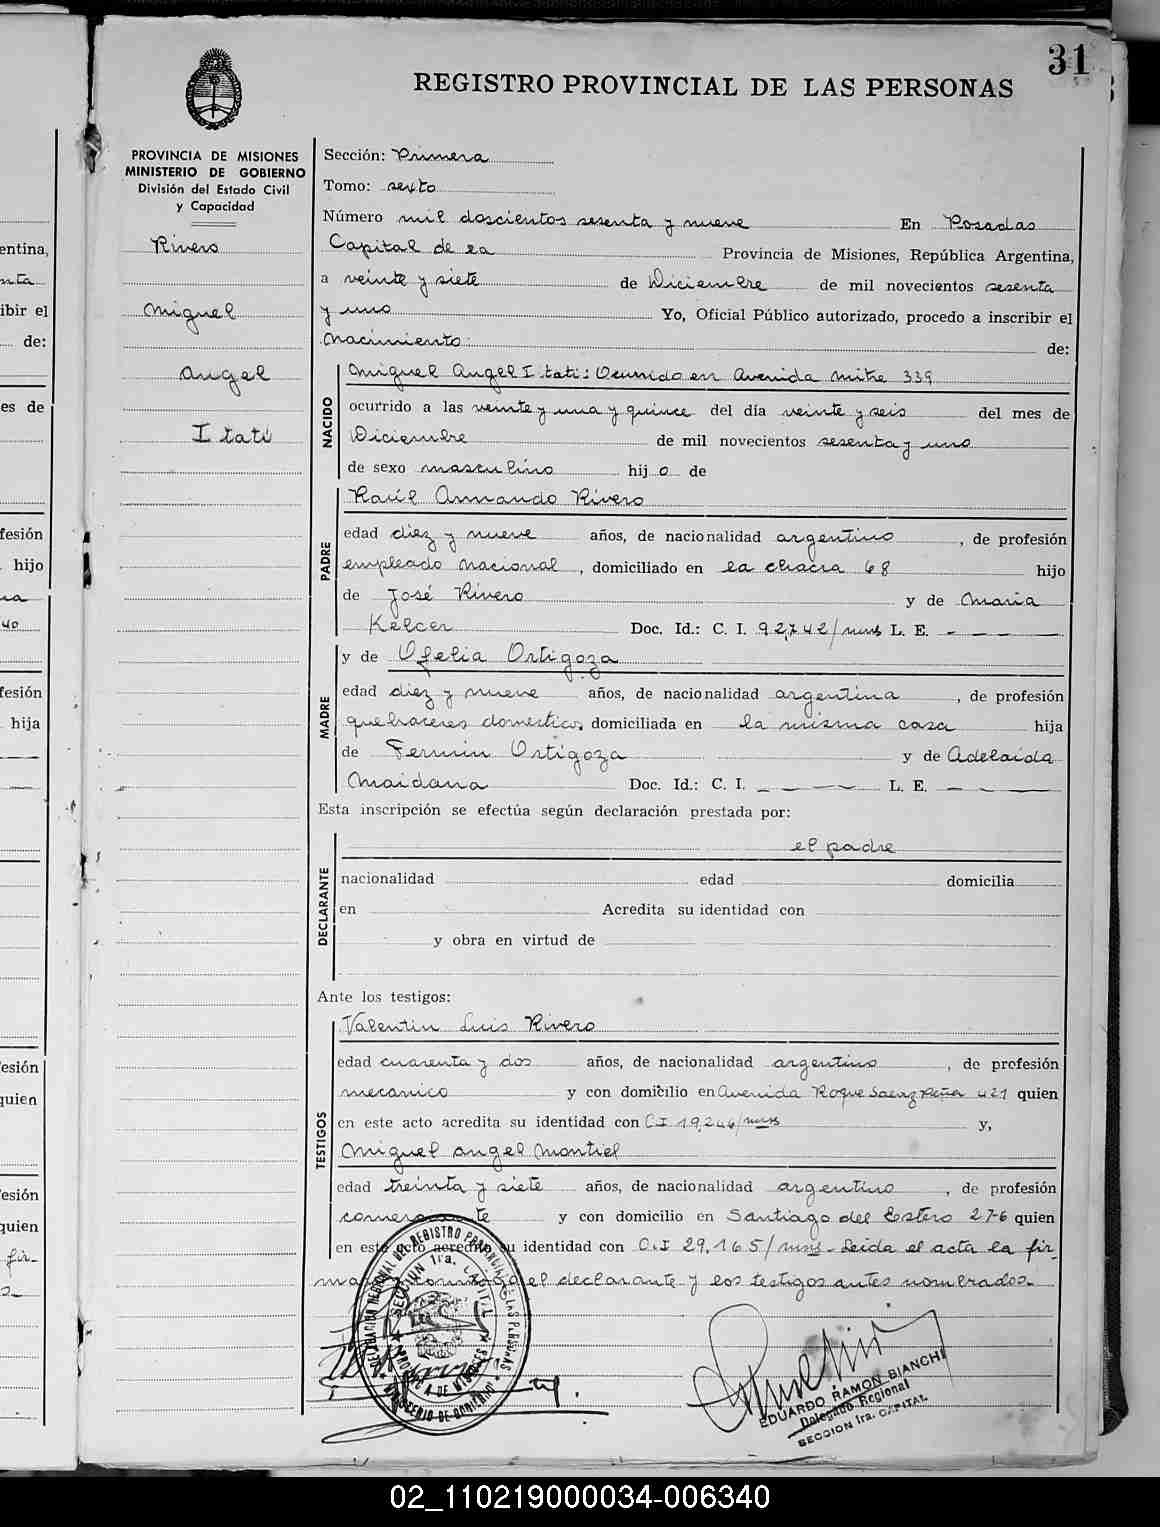 31
REGISTRO PROVINCIAL DE LAS PERSONAS
PROVINCIA DE MISIONES
MINISTERIO DE GOBIERNO
División del Estado Civil
y Capacidad
Rivero
Miguel
Angel
Itatí
Sección: Primera
Tomo: sexto
Número mil doscientos sesenta y nueve En Posadas
Capital de la Provincia de Misiones, República Argentina,
a veinte y siete de Diciembre de mil novecientos sesenta
y uno Yo, Oficial Público autorizado, procedo a inscribir el
Nacimiento: de:
NACIDO
Miguel Angel Itatí: Ocurrido en Avenida Mitre 339
ocurrido a las veinte y una y quince del día veinte y seis del mes de
Diciembre de mil novecientos sesenta y uno
de sexo masculino hijo de
PADRE
Raúl Armando Rivero
edad diez y nueve años, de nacionalidad argentino, de profesión
empleado nacional, domiciliado en la chacra 68 hijo
de José Rivero y de Maria
Kelcer Doc. Id.: C. I. 92,742/mns L. E. - - - -
MADRE
y de Ofelia Ortigoza
edad diez y nueve años, de nacionalidad argentina, de profesión
quehaceres domésticos, domiciliada en la misma casa hija
de Fermin Ortigoza y de Adelaida
Maidana Doc. Id.: C. I. - - - - L. E. - - - -
Esta inscripción se efectúa según declaración prestada por:
DECLARANTE
el padre
nacionalidad edad domicilia
en Acredita su identidad con
y obra en virtud de
Ante los testigos:
TESTIGOS
Valentin Luis Rivero
edad cuarenta y dos años, de nacionalidad argentino, de profesión
mecanico y con domicilio en Avenida Roque Saenz Peña 421 quien
en este acto acredita su identidad con CI 19,246/mns y,
Miguel angel Montiel
edad treinta y siete años, de nacionalidad argentino, de profesión
y con domicilio en Santiago del Estero 276 quien
en este acto acredita su identidad con C.I 29,165/mns - Leida el acta la fir-
man conmigo el declarante y los testigos antes nombrados.-
DELEGACION REGIONAL DEL REGISTRO PROVINCIAL DE LAS PERSONAS
SECCION 1ra. CAPITAL
PROVINCIA DE MISIONES
MINISTERIO DE GOBIERNO
EDUARDO RAMON BIANCHI
Delegado Regional
SECCION 1ra. CAPITAL
02_110219000034-006340